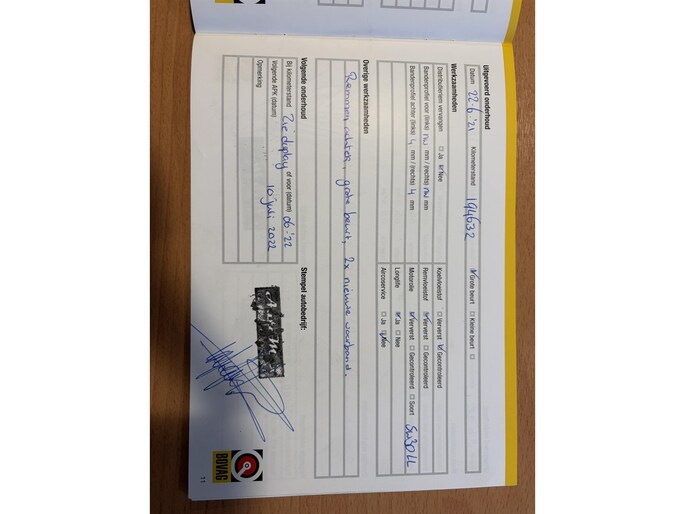 Uitgevoerd onderhoud
Datum 22-6-'21 Kilometerstand 194632 Grote beurt Kleine beurt
Werkzaamheden
Distributieriem vervangen Ja Nee
Bandenprofiel voor (links) nw mm / (rechts) nw mm
Bandenprofiel achter (links) 4 mm / (rechts) 4 mm
Koelvloeistof Ververst Gecontroleerd
Remvloeistof Ververst Gecontroleerd
Motorolie Ververst Gecontroleerd Soort 5w30LL
Longlife Ja Nee
Aircoservice Ja Nee
Overige werkzaamheden
Remmen achter, grote beurt, 2x nieuwe voorband.
Volgende onderhoud
Bij kilometerstand Zie display of voor (datum) 06-'22
Volgende APK (datum) 10 juli 2022
Opmerking
Stempel autobedrijf:
BOVAG
11